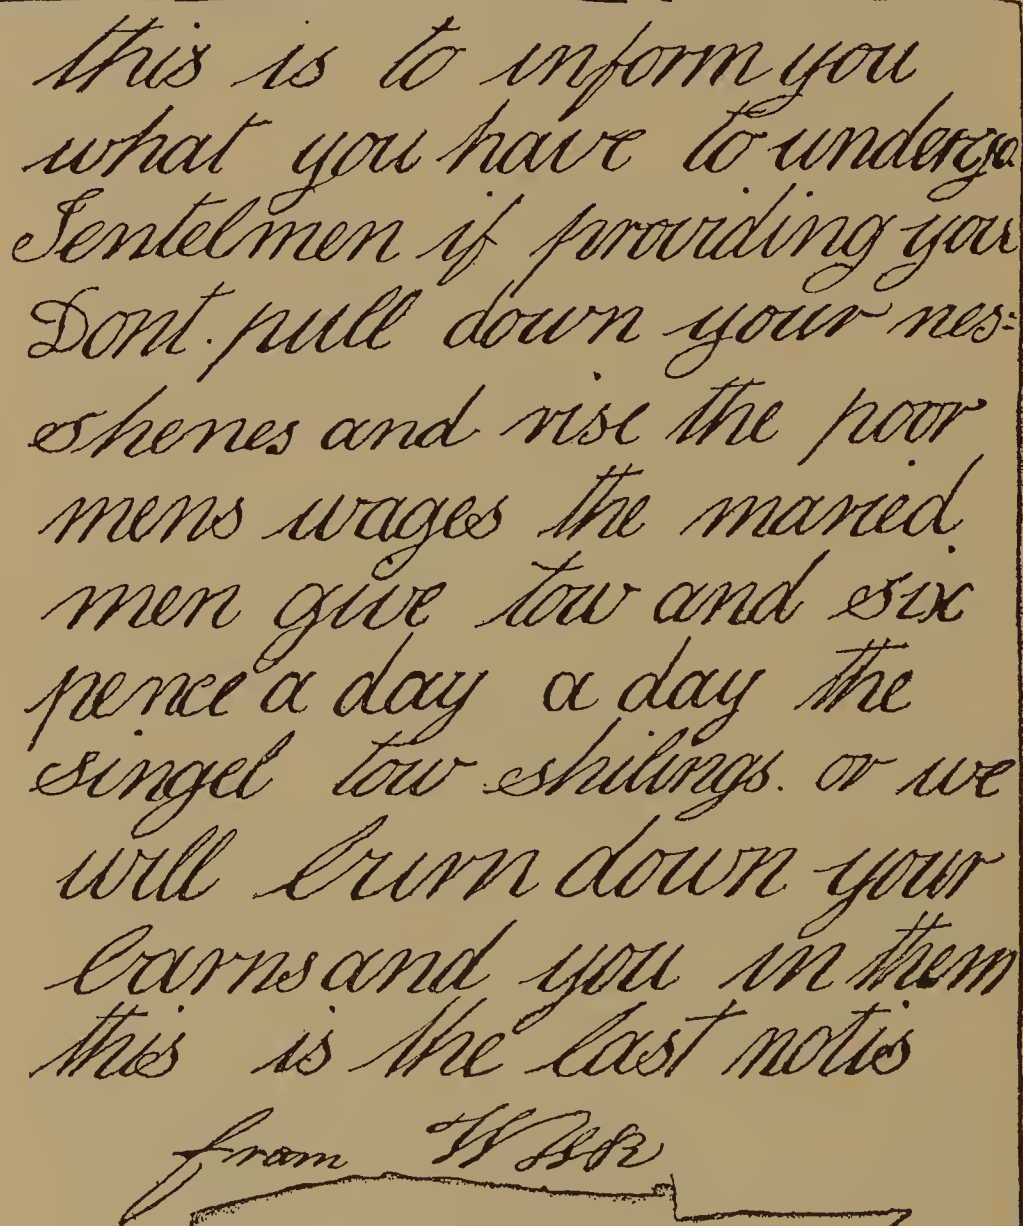 this is to inform you
what you have to undergo
Jentelmen if providing you
Dont. pull down your nes=
shenes and rise the poor
mens wages the maried
men give tow and six
pence a day a day the
singel tow shilings. or we
will burn down your
barns and you in them
this is the last notis
from